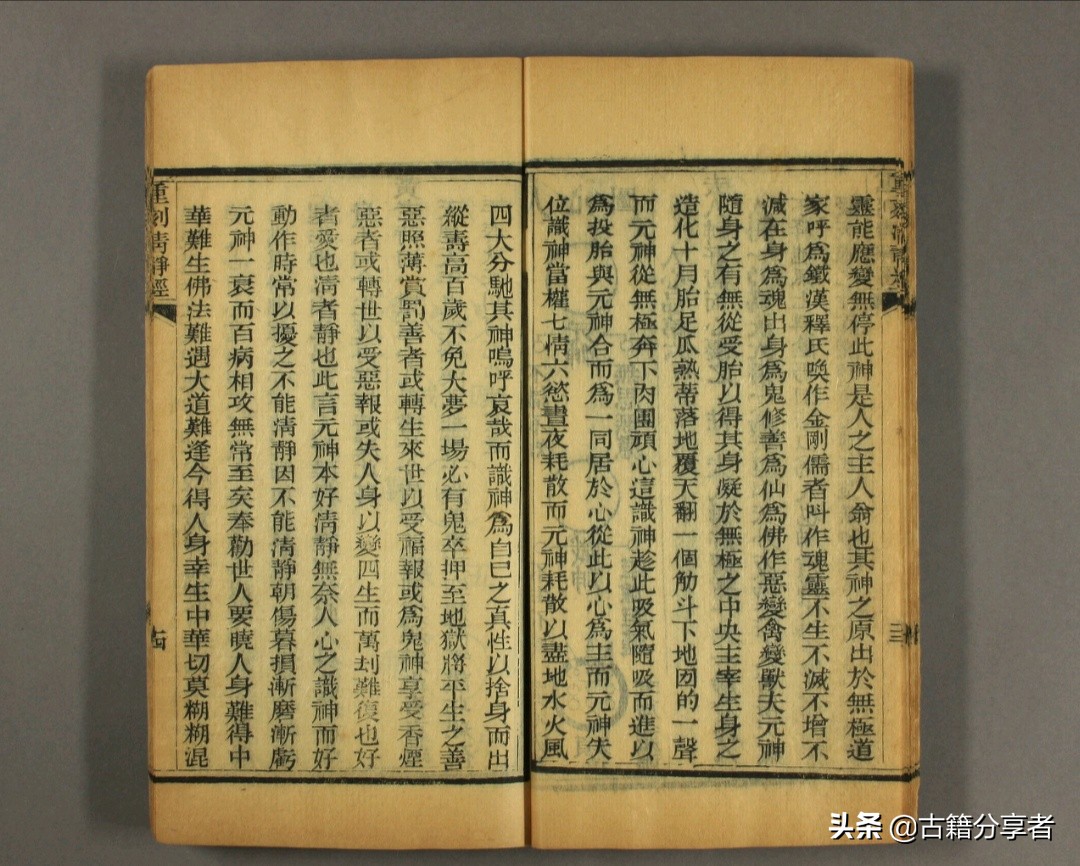 靈能應變無停此神是人之主人翁也其神之原出於無極道
家呼爲鐵漢釋氏喚作金剛儒者呌作魂靈不生不滅不增不
減在身爲魂出身爲鬼修善爲仙爲佛作惡變禽變獸夫元神
隨身之有無從受胎以得其身凝於無極之中央主宰生身之
造化十月胎足瓜熟蒂落地覆天翻一個觔斗下地囫的一聲
而元神從無極奔下肉團頑心這識神趁此吸氣隨吸而進以
爲投胎與元神合而爲一同居於心從此以心爲主而元神失
位識神當權七情六慾晝夜耗散而元神耗散以盡地水火風
四大分馳其神嗚呼哀哉而識神爲自己之真性以捨身而出
縱壽高百歲不免大夢一場必有鬼卒押至地獄將平生之善
惡照薄賞罰善者或轉生來世以受福報或爲鬼神享受香煙
惡者或轉世以受惡報或失人身以變四生而萬刼難復也好
者愛也清者靜也此言元神本好清靜無奈人心之識神而好
動作時常以擾之不能清靜因不能清靜朝傷暮損漸磨漸虧
元神一衰而百病相攻無常至矣奉勸世人要曉人身難得中
華難生佛法難遇大道難逢今得人身幸生中華切莫糊糊混
重刻清靜經
头条 @古籍分享者